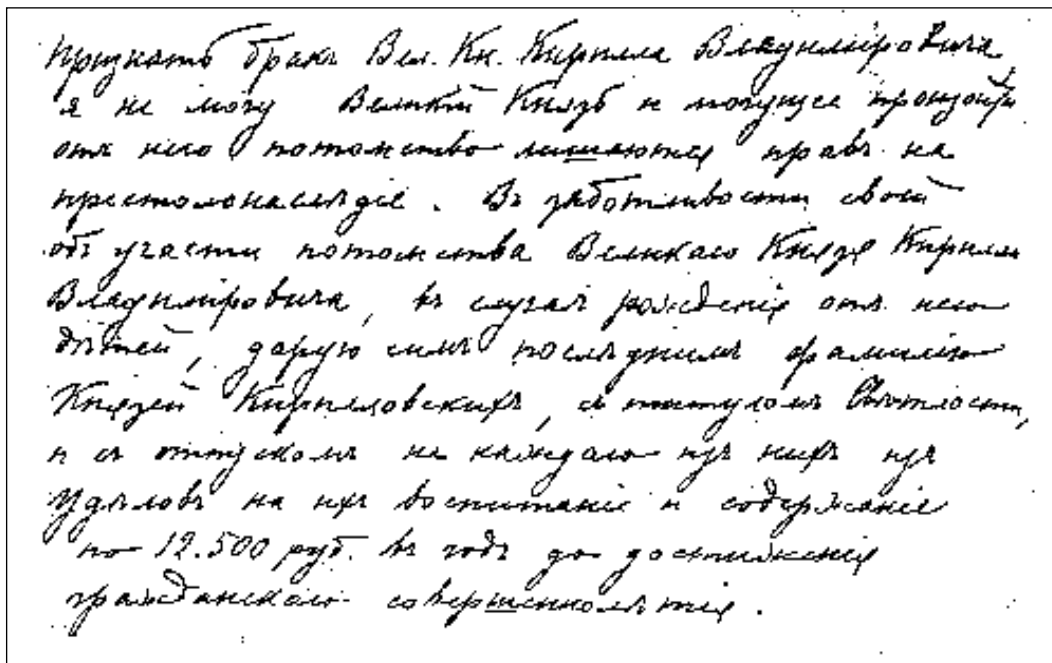 Признать бракъ Вел. Кн. Кирилла Владиміровича,
я не могу Великій Князь и могущее произойти
отъ него потомство лишаются правъ на
престолонаслѣдіе. Въ заботливости своей
объ участи потомства Великаго Князя Кирилла
Владиміровича, въ случаѣ рожденія отъ него
дѣтей, дарую симъ послѣднимъ фамилію
Князей Кирилловскихъ, съ титуломъ Свѣтлости,
и съ отпускомъ на каждаго изъ нихъ изъ
Удѣловъ на ихъ воспитаніе и содержаніе
по 12.500 руб. въ годъ до достиженія
гражданскаго совершеннолѣтія.